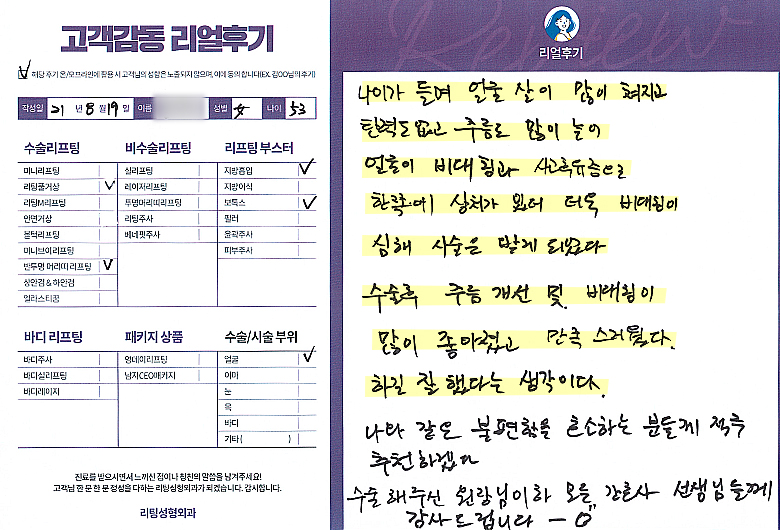 고객감동 리얼후기
해당 후기 온/오프라인에 활용 시 고객님의 성함은 노출되지 않으며, 이에 동의합니다(EX. 김OO님의 후기)
작성일 21 년 8 월 19 일 이름 성별 女 나이 53
수술리프팅 비수술리프팅 리프팅 부스터
미니리프팅 실리프팅 지방흡입 ✓
리팅풀거상 ✓ 레이저리프팅 지방이식
리팅M리프팅 투명머리띠리프팅 보톡스 ✓
안면거상 리팅주사 필러
볼턱리프팅 베네핏주사 윤곽주사
미니브이리프팅 피부주사
반투명 머리띠 리프팅 ✓
상안검 & 하안검
엘라스티꿈
바디 리프팅 패키지 상품 수술/시술 부위
바디주사 원데이리프팅 얼굴 ✓
바디실리프팅 남자CEO패키지 이마
바디레이저 눈
목
바디
기타 ( )
진료를 받으시면서 느끼신 점이나 칭찬의 말씀을 남겨주세요!
고객님 한 분 한 분 정성을 다하는 리팅성형외과가 되겠습니다. 감사합니다.
리팅성형외과
Review
리얼후기
나이가 들며 얼굴 살이 많이 쳐지고
탄력도 없고 주름도 많이 늘어
얼굴이 비대칭과 사고후유증으로
한쪽에 상처가 있어 더욱 비대칭이
심해 시술은 받게 되었다
수술후 주름 개선 및 비대칭이
많이 좋아졌고 만족 스러웠다.
하길 잘 했다는 생각이다.
나와 같은 불편함을 호소하는 분들께 적극
추천하겠다
수술 해주신 원장님이하 모든 간호사 선생님들께
감사드립니다